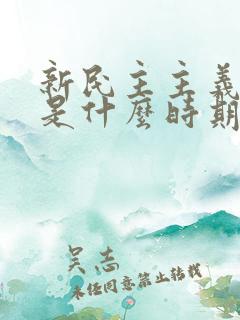 新民主主義
是什麼時期
吴志
未经同意禁止转载